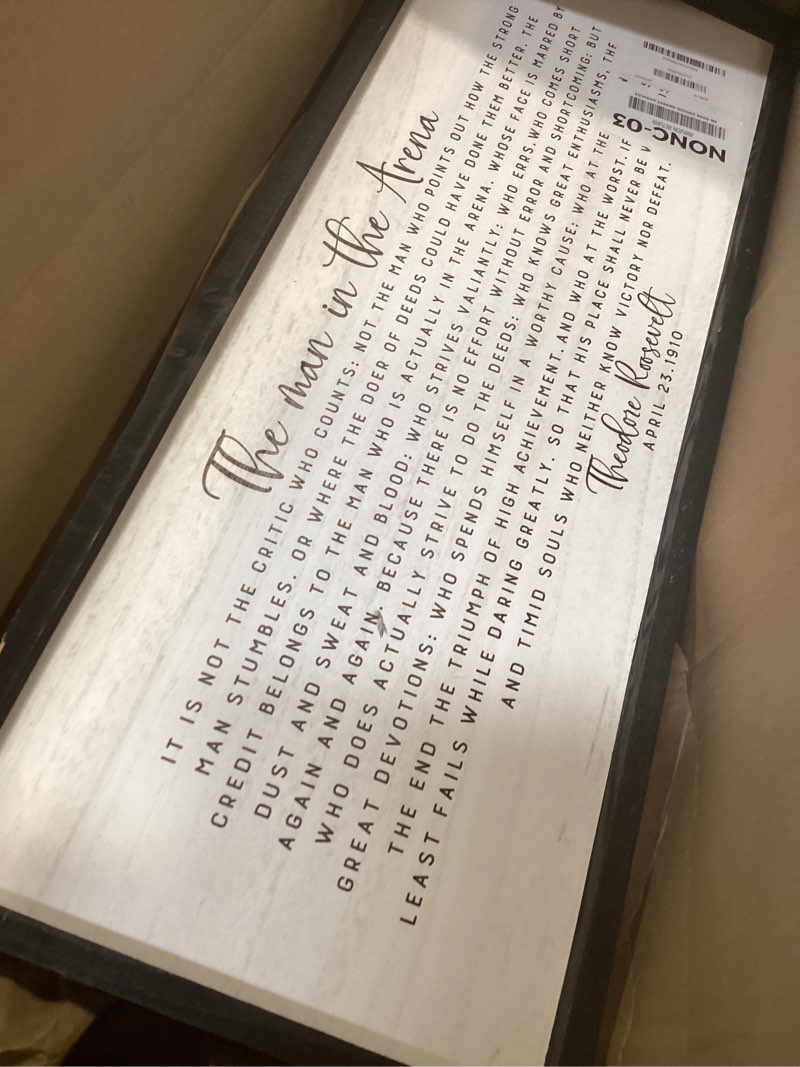 The man in the Arena
IT IS NOT THE CRITIC WHO COUNTS: NOT THE MAN WHO POINTS OUT HOW THE STRONG
MAN STUMBLES, OR WHERE THE DOER OF DEEDS COULD HAVE DONE THEM BETTER. THE
CREDIT BELONGS TO THE MAN WHO IS ACTUALLY IN THE ARENA, WHOSE FACE IS MARRED BY
DUST AND SWEAT AND BLOOD; WHO STRIVES VALIANTLY; WHO ERRS, WHO COMES SHORT
AGAIN AND AGAIN, BECAUSE THERE IS NO EFFORT WITHOUT ERROR AND SHORTCOMING; BUT
WHO DOES ACTUALLY STRIVE TO DO THE DEEDS; WHO KNOWS GREAT ENTHUSIASMS, THE
GREAT DEVOTIONS; WHO SPENDS HIMSELF IN A WORTHY CAUSE; WHO AT THE
THE END THE TRIUMPH OF HIGH ACHIEVEMENT, AND WHO AT THE WORST, IF
LEAST FAILS WHILE DARING GREATLY, SO THAT HIS PLACE SHALL NEVER BE
AND TIMID SOULS WHO NEITHER KNOW VICTORY NOR DEFEAT.
Theodore Roosevelt
APRIL 23, 1910
NONC-03